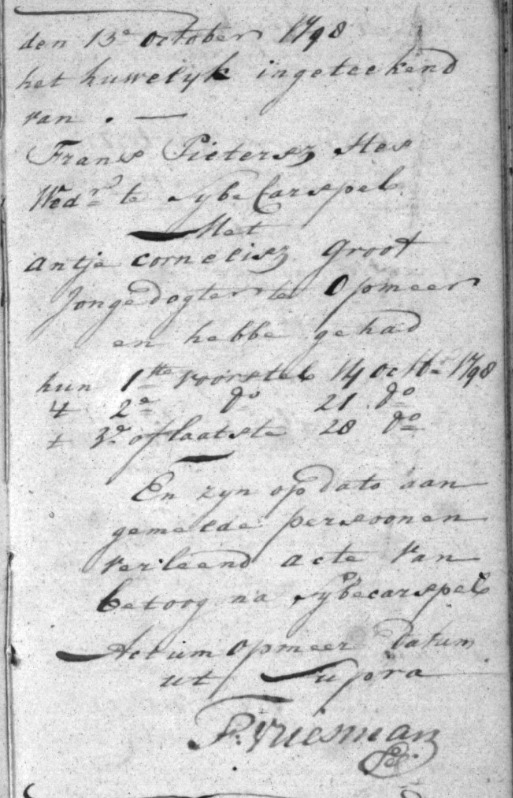 den 13e october 1798
het huwelyk ingeteekend
van . —
Frans Pietersz Hes
Wednr te Sybecarspel
Met
antje cornelisz Groot
Jongedogter te Opmeer
en hebbe gehad
hun 1ste voorstel 14 octbr 1798
2e do 21 do
3e of laatste 28 do
En zyn op dato aan
gemelde persoonen
verleend acte van
betoog na Sybecarspel
Actum Opmeer datum
ut Supra
P. Vriesman